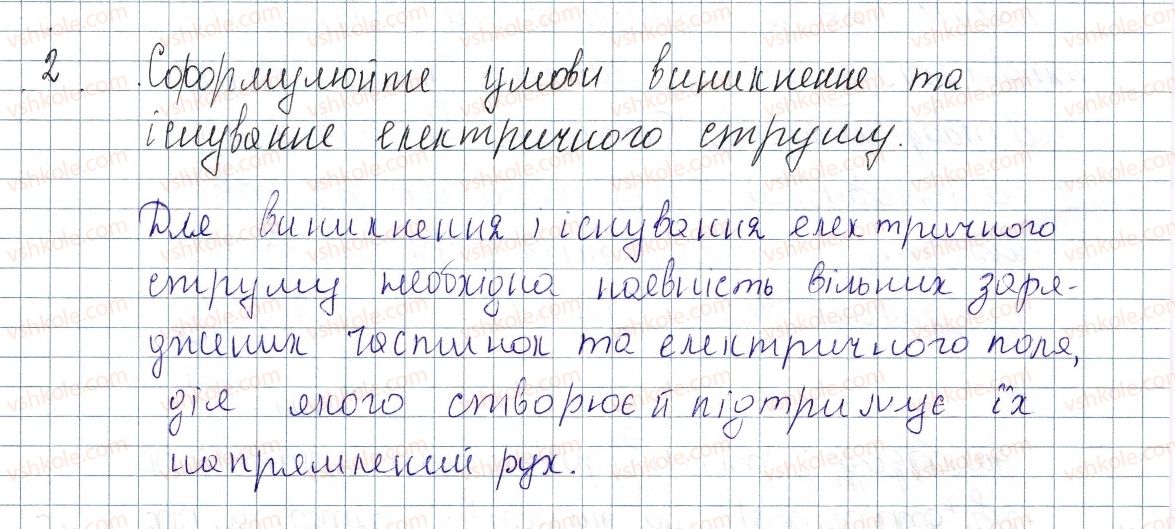 2. Сформулюйте умови виникнення та
існування електричного струму.
Для виникнення і існування електричного
струму необхідна наявність вільних заря-
джених частинок та електричного поля,
дія якого створює й підтримує їх
напрямлений рух.